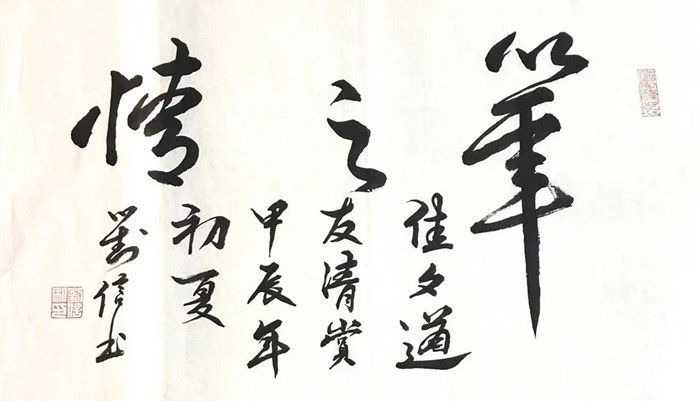 筆之情
佳夕道
友清賞
甲辰年
初夏
劉信书